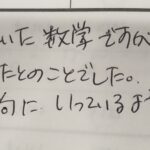 いた数学ですが
たとのことでした。
向にいっているよ